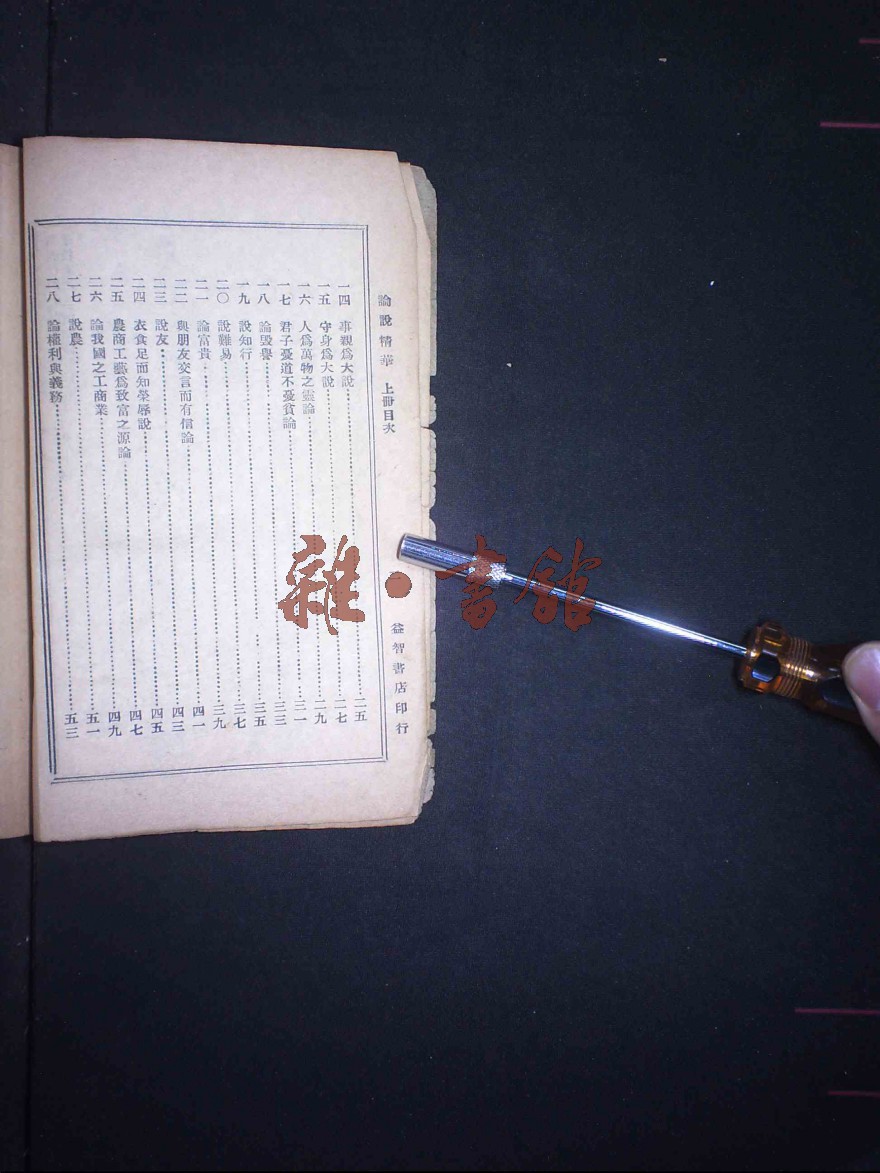 論說精華 上冊目次 益智書店印行
一四 事親爲大說 二五
一五 守身爲大說 二七
一六 人爲萬物之靈論 二九
一七 君子憂道不憂貧論 三一
一八 論毀譽 三三
一九 設知行 三五
二〇 說難易 三七
二一 論富貴 三九
二二 與朋友交言而有信論 四一
二三 說友 四三
二四 衣食足而知榮辱說 四五
二五 農商工藝爲致富之源論 四七
二六 論我國之工商業 四九
二七 說農 五一
二八 論權利與義務 五三
雜·書館